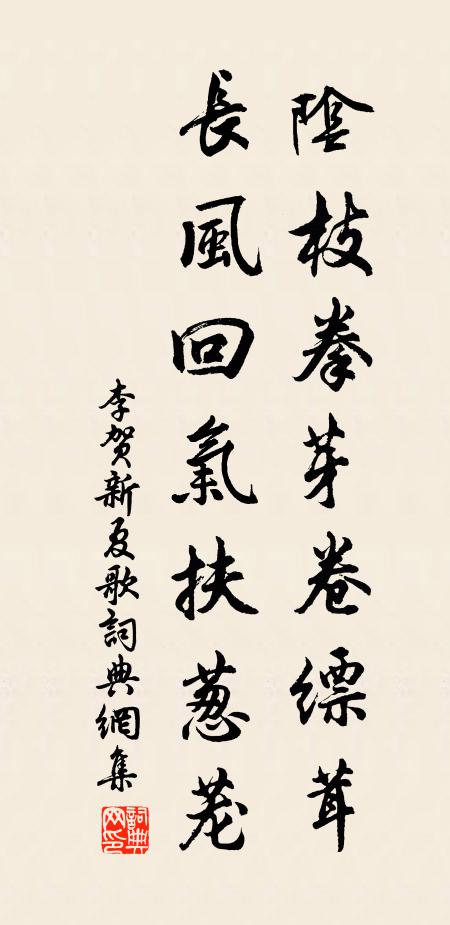 陰枝拳芽卷縹茸
長風回氣扶葱茏
李贺新夏歌詞典網集
詞典网印